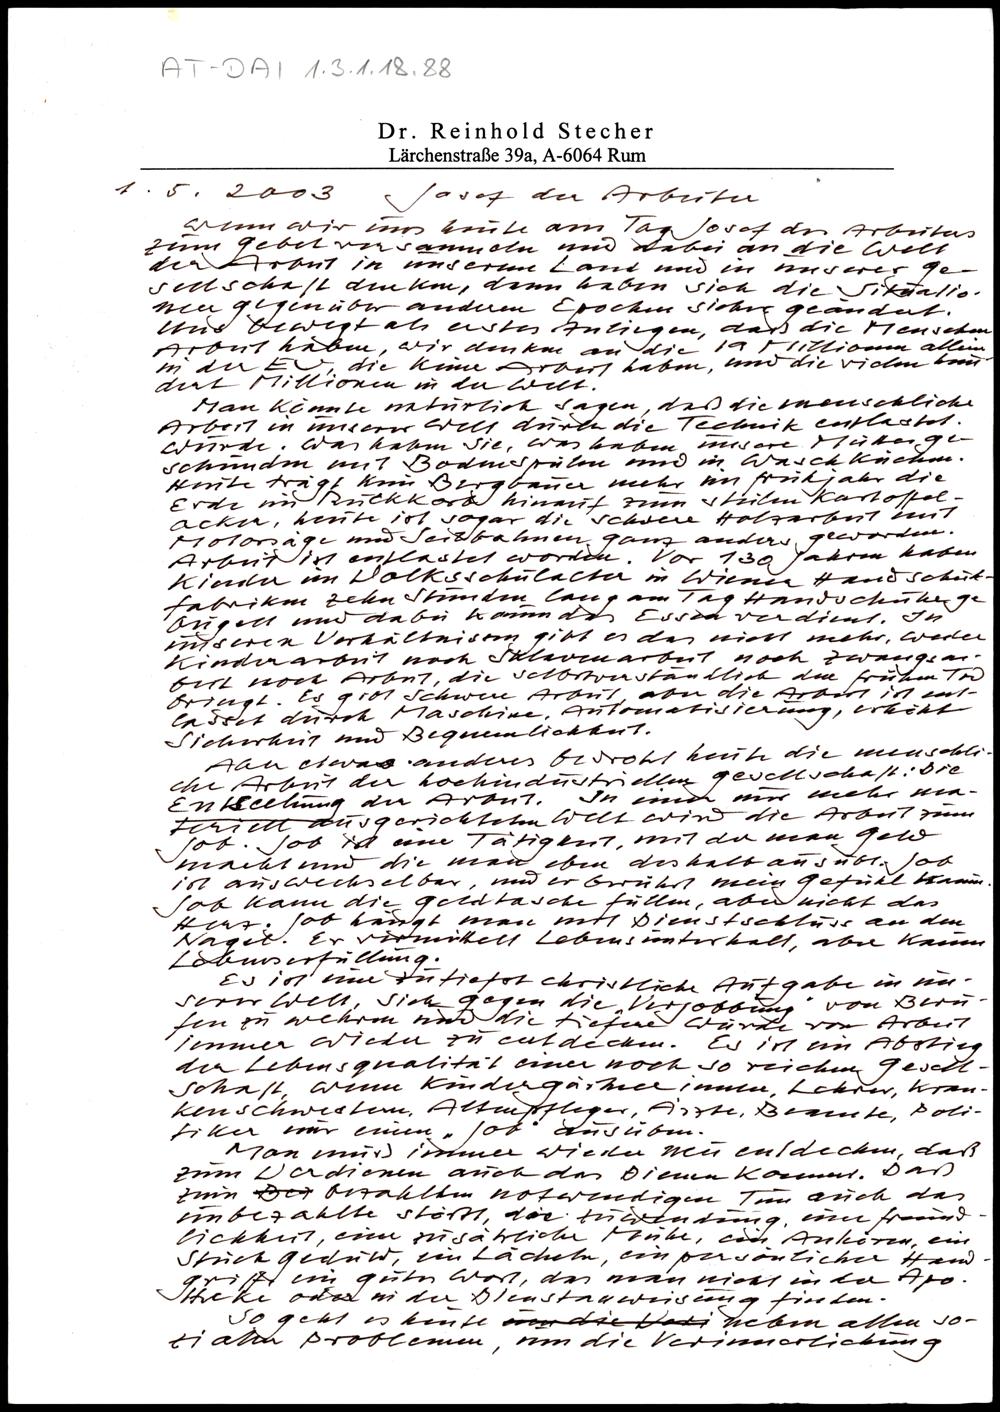 AT-DAI 1.3.1.18.88
Dr. Reinhold Stecher
Lärchenstraße 39a, A-6064 Rum
1. 5. 2003 Josef der Arbeiter
Wenn wir uns heute am Tag Josef des Arbeiters
zum Gebet versammeln und dabei an die Welt
der Arbeit in unserem Land und in unserer Ge-
sellschaft denken, dann haben sich die Situatio-
nen gegenüber anderen Epochen sicher geändert.
Uns bewegt als erstes Anliegen, daß die Menschen
Arbeit haben, wir denken an die 19 Millionen allein
in der EU, die keine Arbeit haben, und die vielen hun-
dert Millionen in der Welt.
Man könnte natürlich sagen, daß die menschliche
Arbeit in unserer Welt durch die Technik entlastet
würde. Was haben sie, was haben unsere Mütter ge-
schunden mit Bodenspülen und in Waschküchen.
Heute trägt kein Bergbauer mehr im Frühjahr die
Erde im Rückkorb hinauf zum steilen Kartoffel-
acker, heute ist sogar die schwere Holzarbeit mit
Motorsäge und Seilbahnen ganz anders geworden.
Arbeit ist entlastet worden. Vor 130 Jahren haben
Kinder im Volksschulalter in Wiener Handschuh-
fabriken zehn Stunden lang am Tag Handschuhe ge
bügelt und dabei kaum das Essen verdient. In
unseren Verhältnissen gibt es das nicht mehr, weder
Kinderarbeit noch Sklavenarbeit noch Zwangsar-
beit noch Arbeit, die selbstverständlich den frühen Tod
bringt. Es gibt schwere Arbeit, aber die Arbeit ist ent-
lastet durch Maschine, Automatisierung, erhöht
Sicherheit und Bequemlichkeit.
Aber etwas anderes bedroht heute die menschli-
che Arbeit der hochindustriellen Gesellschaft: Die
Entseelung der Arbeit. In einer nur mehr ma-
teriell ausgerichteten Welt wird die Arbeit zum
Job. Job ist eine Tätigkeit, mit der man Geld
macht und die man eben deshalb ausübt. Job
ist auswechselbar, und er berührt mein Gefühl kaum.
Job kann die Geldtasche füllen, aber nicht das
Herz. Job hängt man mit Dienstschluss an den
Nagel. Er vermittelt Lebensunterhalt, aber kaum
Lebenserfüllung.
Es ist eine zutiefst christliche Aufgabe in un-
serer Welt, sich gegen die "Verjobbung" von Beru-
fen zu wehren und die tiefere Würde von Arbeit
immer wieder zu entdecken. Es ist ein Abstieg
der Lebensqualität einer noch so reichen Gesell-
schaft, wenn Kindergärtnerinnen, Lehrer, Kran-
kenschwestern, Altenpfleger, Ärzte, Beamte, Poli-
tiker nur einen "Job" ausüben.
Man muß immer wieder neu entdecken, daß
zum Verdienen auch das Dienen kommt. Daß
zum Bez bezahlten notwendigen Tun auch das
unbezahlte stößt, die Zuwendung, eine Freund-
lichkeit, eine zusätzliche Mühe, ein Anhören, ein
Stück Geduld, ein Lächeln, ein persönlicher Hand-
griff, ein gutes Wort, das man nicht in der Apo-
theke oder in der Dienstanweisung finden.
So geht es heute neben allen so-
zialen Problemen, um die Verinnerlichung